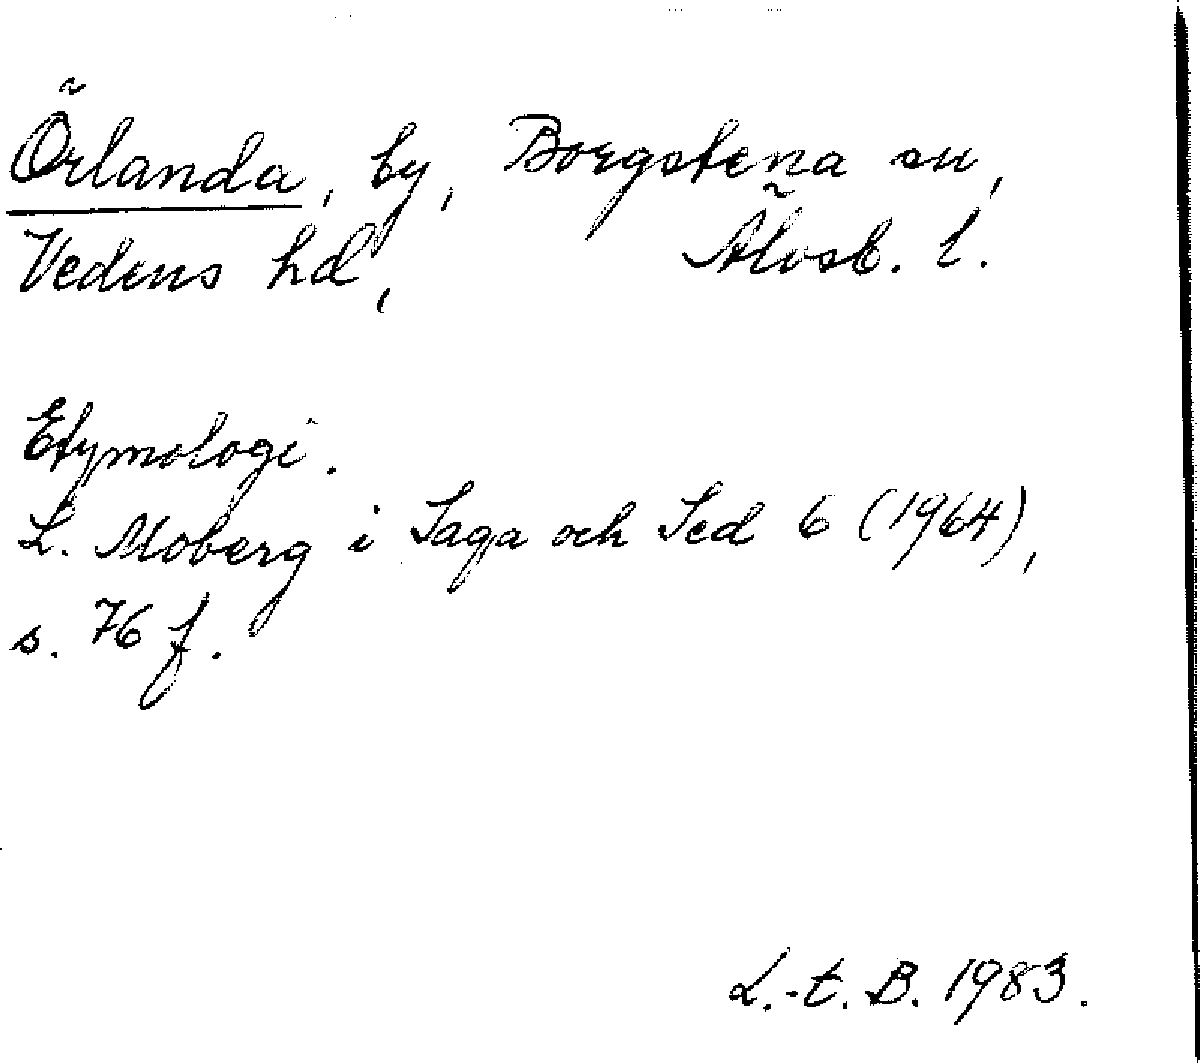 Örlanda, by, Borgstena sn,
Vedens hd, Älvsb. l.
Etymologi.
L. Moberg i Saga och Sed 6 (1964),
s. 76 f.
L.-t. B. 1983.